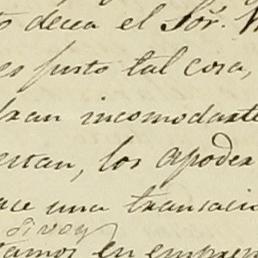 decia el Sõr.
es justo tal cosa,
incomodarte
estan, los apoder
ace una transacio
en empren